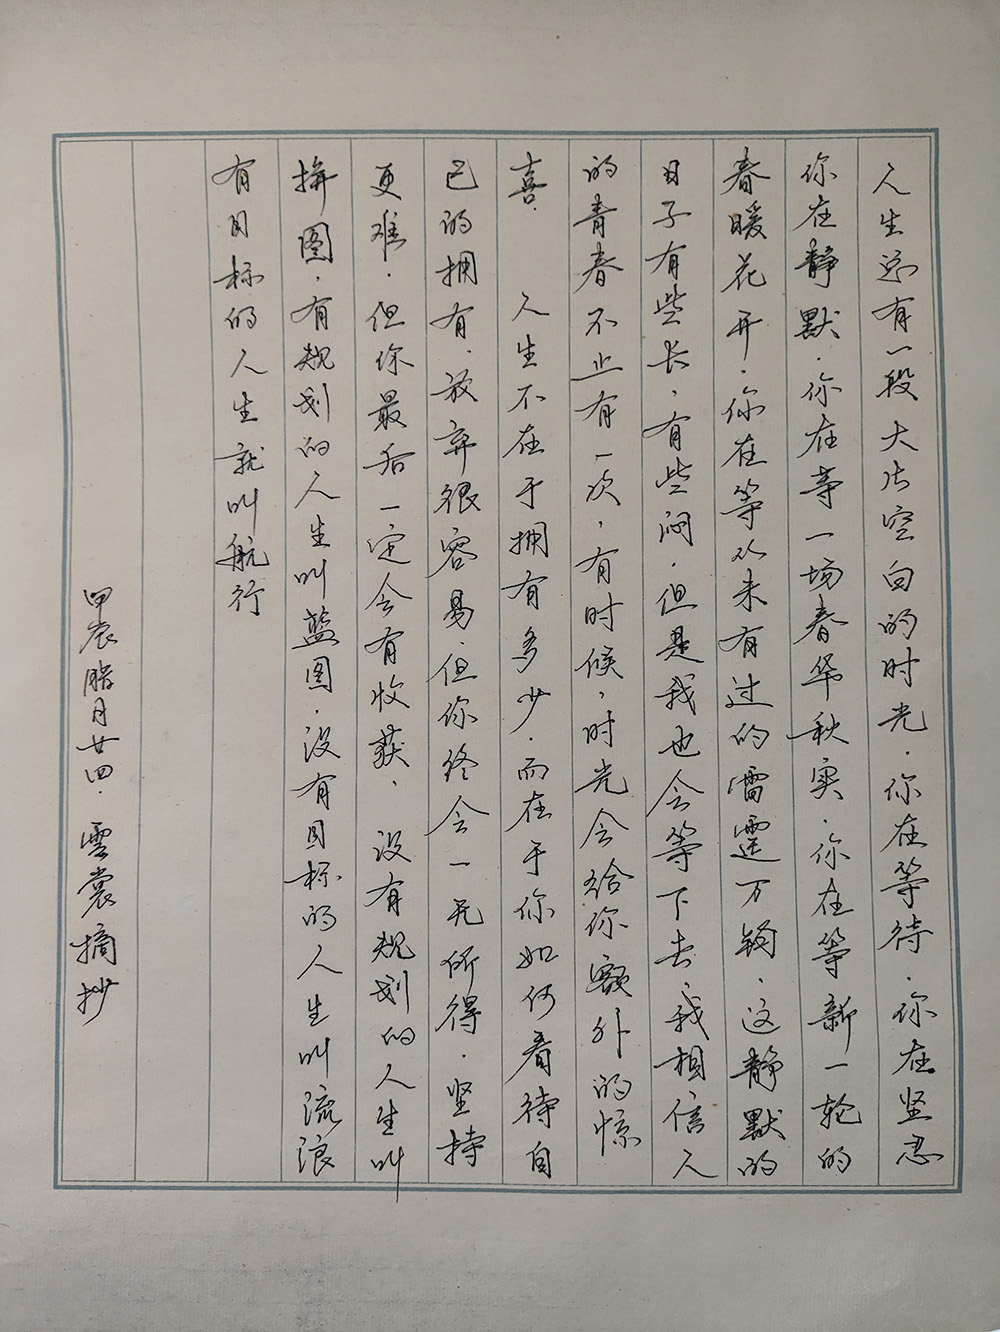 人生总有一段大片空白的时光．你在等待．你在坚忍
你在静默．你在等一场春华秋实．你在等新一轮的
春暖花开．你在等从未有过的雷霆万钧．这静默的
日子有些长，有些闷．但是我也会等下去，我相信人
的青春不止有一次，有时候，时光会给你额外的惊
喜． 人生不在于拥有多少．而在于你如何看待自
己的拥有．放弃很容易．但你终会一无所得．坚持
更难．但你最后一定会有收获． 没有规划的人生叫
拼图．有规划的人生叫蓝图．没有目标的人生叫流浪
有目标的人生就叫航行
甲辰腊月廿四．云裳摘抄